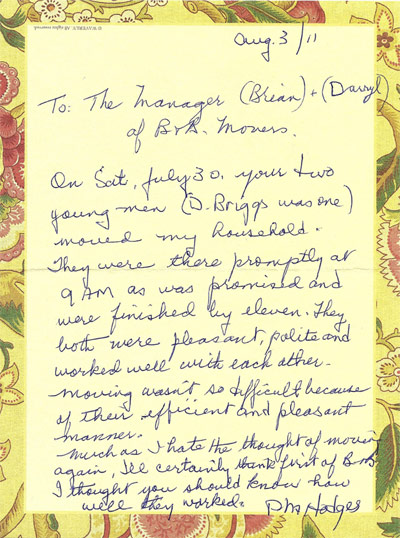 © WAVERLY All rights reserved
Aug. 3/11
To: The Manager (Brian) + (Darryl
of B&B. Movers.
On Sat, July 30, your two
young men (D. Briggs was one)
moved my household.
They were there promptly at
9 AM as was promised and
were finished by eleven. They
both were pleasant, polite and
worked well with each other.
Moving wasn't so difficult because
of their efficient and pleasant
manner.
Much as I hate the thought of moving
again, I'll certainly think first of B&B
I thought you should know how
well they worked.
Hodges